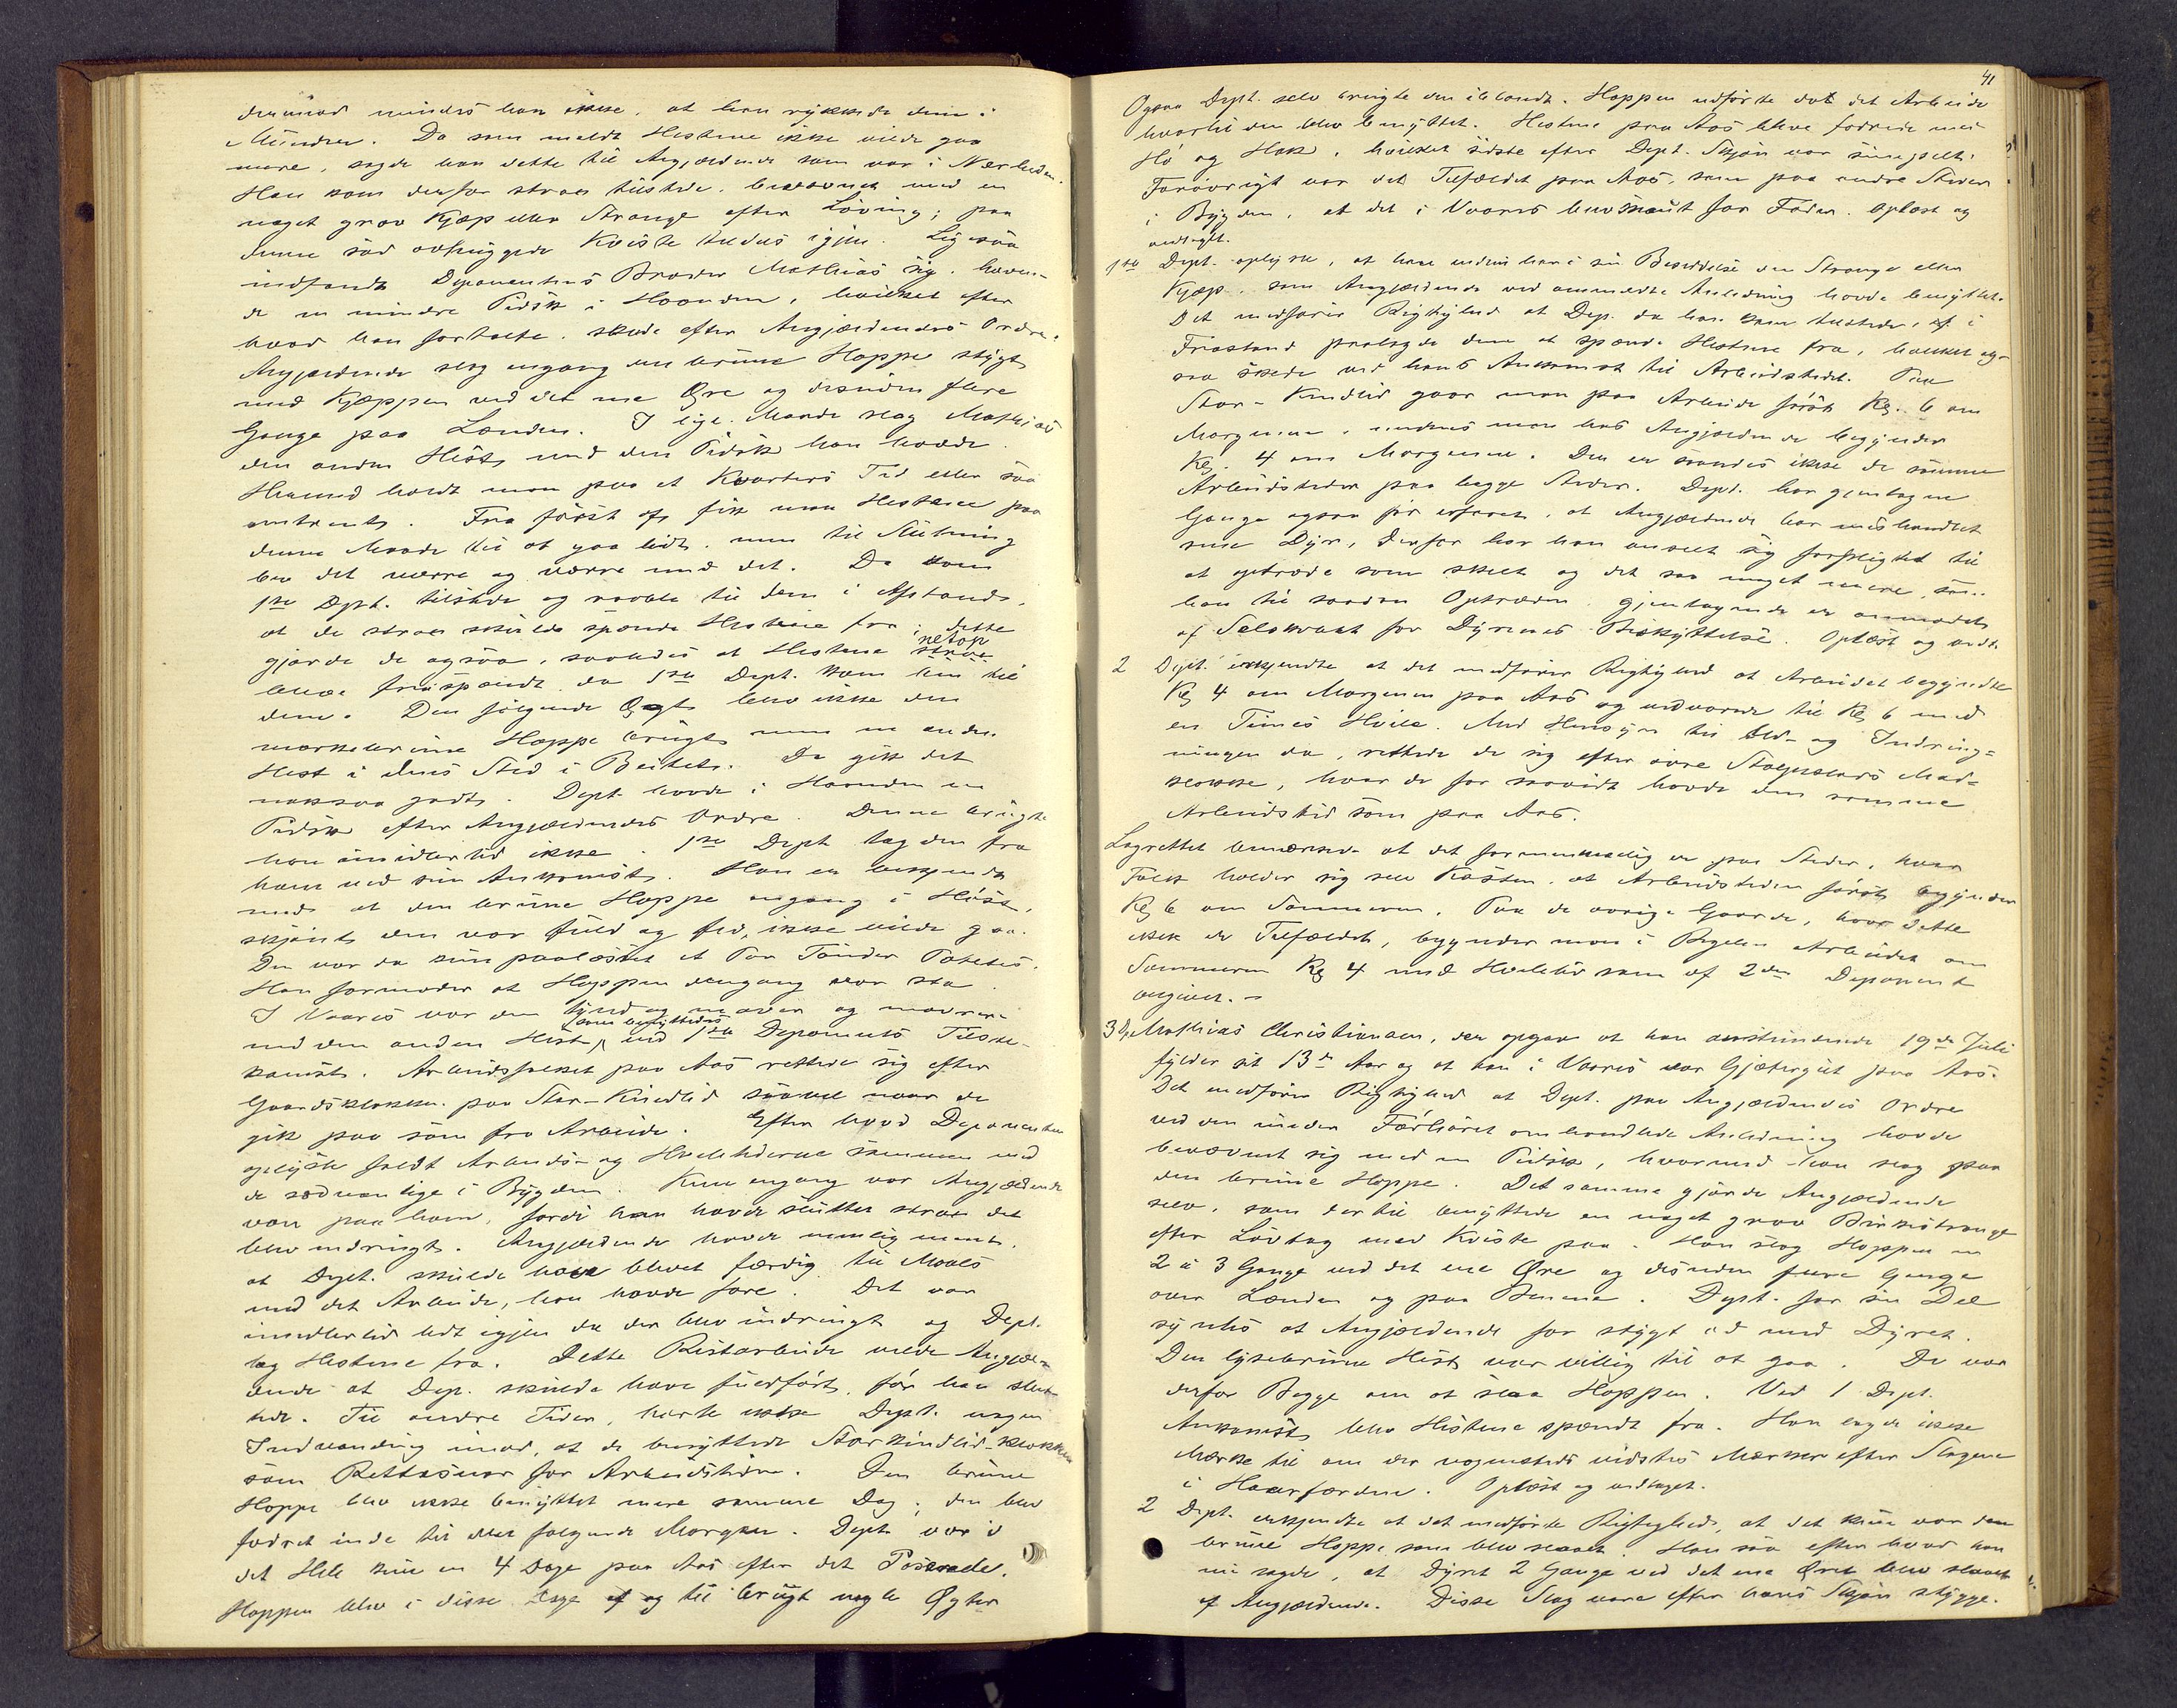 derimod mindes han ikke, at han rykkede dem i
Munden. Da som meldt Hestene ikke vilde gaa
mere, sagde han dette til Angjældende som var i Nærheden.
Han kom derfor strax tilstede, bevæbnet med en
noget grov Kjæp eller Strange efter Löving; paa
denne sad avhuggede Kviste tildels igjen. Ligesaa
indfandt Deponentens Broder Mathias sig, haven-
de en mindre Pidsk i Haanden, hvilket efter
hvad han fortalte, skede efter Angjældendes Ordre.
Angjældende slog engang den brune Hoppe stygt
med Kjæppen ved det ene Øre og desuden flere
Gange paa Lenden. I lige Maade slog Mathias
den anden Hest med den Pidsk han havde.
Hermed holdt man paa et Kvarters Tid eller saa
omtrent. Fra först af fik man Hestene paa
denne Maade til at gaa lidt, men til Slutning
blev det værre og værre med det. Da kom
1ste Dept. tilstede og raabte til dem i Afstand,
at de strax skulde spænde Hestene fra; dette
gjorde de ogsaa, saaledes at Hestene netop
bleve fraspændt da 1ste Dept. kom hen til
dem. Den fölgende Øgt blev ikke den
mørkebrune Hoppe brugt men en anden
Hest i dens Sted i Beitet. Da gik det
noksaa godt. Dept. havde i Haanden en
Pidsk efter Angjældendes Ordre. Denne brugte
han imidlertid ikke. 1ste Dept tog den fra
ham ved sin Ankomst. Han er bekjendt
med at den brune Hoppe engang i Höst,
skjönt den var fuld og fed, ikke vilde gaa.
Der var da kun paalæsset et Par Tönder Poteter.
Han formoder at Hoppen dengang var sta.
I Vaares var den tynd og maver og mavrere
end den anden Hest, som benyttedes ved 1ste Deponents Tilste-
komst. Arbeidsfolket paa Aas rettede sig efter
Gaardsklokken paa Stor-Kindlid saavel naar de
gik paa som fra Arbeide. Efter hvad Deponenten
oplyste faldt Arbeids- og Hviletiderne sammen med
de sædvanlige i Bygden. Kun engang var Angjældende
von paa ham, fordi han havde sluttet strax det
blev indringt. Angjældende havde nemlig ment,
at Dept. skulde have blevet færdig til Maals
med det Arbeide, han havde fore. Det var
imidlertid lidt igjen da der blev indringt og Dept.
tog Hestene fra. Dette Restarbeide vilde Angjæl-
dende at Dep. skulde have fuldfört, för han slut-
tede. Til andre Tider, hørte ikke Dept. nogen
Indvending imod, at de benyttede Storkindlid-klokken
som Rettesnor for Arbeidstiden. Den brune
Hoppe blev ikke benyttet mere samme Dag; den blev
fodret inde til den fölgende Morgen. Dept. var i
det Hele kun en 4 Dage paa Aas efter det Passerede.
Hoppen blev i disse Dage af og til brugt nogle Øgter
41
Ogsaa Dept. selv brugte den iblandt. Hoppen udførte da det Arbeide
hvortil den blev benyttet. Hestene paa Aas bleve fodrede med
Hö og Hak, hvilket sidste efter Dept. Skjön var simpelt.
Forövrigt var det Tilfældet paa Aas, som paa andre Steder
i Bygden, at det i Vaares knebent for Foder. Oplæst og
vedtaget.
1ste Dept. oplyste, at han endnu har i sin Besiddelse den Strange eller
Kjæp, som Angjældende ved ommeldte Anledning havde benyttet.
Det medfører Rigtighed at Dep. da han kom tilstede, i
Frastand paalagde dem at spænde Hestene fra, hvilket og-
saa skede ved hans Ankomst til Arbeidsstedet. Paa
Stor-Kindlid gaar man paa Arbeide först Kl. 6 om
Morgenen, medens man hos Angjældende begynder
Kl. 4 om Morgenen. Der er saaledes ikke de samme
Arbeidstider paa begge Steder. Dept. har gjentagne
Gange ogsaa för erfaret, at Angjældende har mishandlet
sine Dyr, derfor har han anseet sig forpligtet til
at optræde som skeet og det saa meget mere, som
han til saadan Optræden gjentagende er anmodet
af Selskabet for Dyrenes Beskyttelse. Oplæst og vedt.
2 Dept. erkjendte at det medfører Rigtighed at Arbeidet begyndte
Kl 4 om Morgenen paa Aas og vedvarede til Kl 6 med
en Times Hvile. Med Hensyn til Ud- og Indring-
ningen da, rettede de sig efter övre Stapnesets Mad-
klokke, hvor de for saavidt havde den samme
Arbeidstid som paa Aas.
Lagrettet bemærkede at det formenmelig er paa Steder, hvor
Folk holder sig selv Kosten, at Arbeidstiden först begynder
Kl 6 om Sommeren. Paa de övrige Gaarde, hvor dette
ikke er Tilfældet, begynder man i Regelen Arbeidet om
Sommeren Kl 4 med Hviletid som af 2den Deponent
angivet. –
3 Dp. Mathias Christiansen, der opgav at han anstundende 19de Juli
fylder sit 13de Aar og at han i Vaares var Gjætergut paa Aas.
Det medfører Rigtighed at Dept. paa Angjældendes Ordre
ved den under Forhöret omhandlede Anledning havde
bevæbnet sig med en Pidsk, hvormed han slog paa
den brune Hoppe. Det samme gjorde Angjældende
selv, som dertil benyttede en noget grov Birkestrange
efter Lövtag med Kviste paa. Han slog Hoppen en
2 à 3 Gange ved det ene Øre og desuden flere Gange
over Lenden og paa Benene. Dept. for sin Del
syntes at Angjældende for stygt ad med Dyret.
Den lysebrune Hest var villig til at gaa. De var
derfor Begge om at slaa Hoppen. Ved 1 Dept.
Ankomst blev Hestene spændt fra. Han lagde ikke
Mærke til om der nogensteds vistes Mærker efter Slagene
i Haarfærden. Oplæst og vedtaget.
2 Dept. erkjendte at det medførte Rigtighed, at det kun var den
brune Hoppe som blev slaaet. Han saa efter hvad han
nu sagde, at Dyret 2 Gange ved det ene Øret blev slaaet
af Angjældende. Disse Slag vare efter hans Skjön stygge.